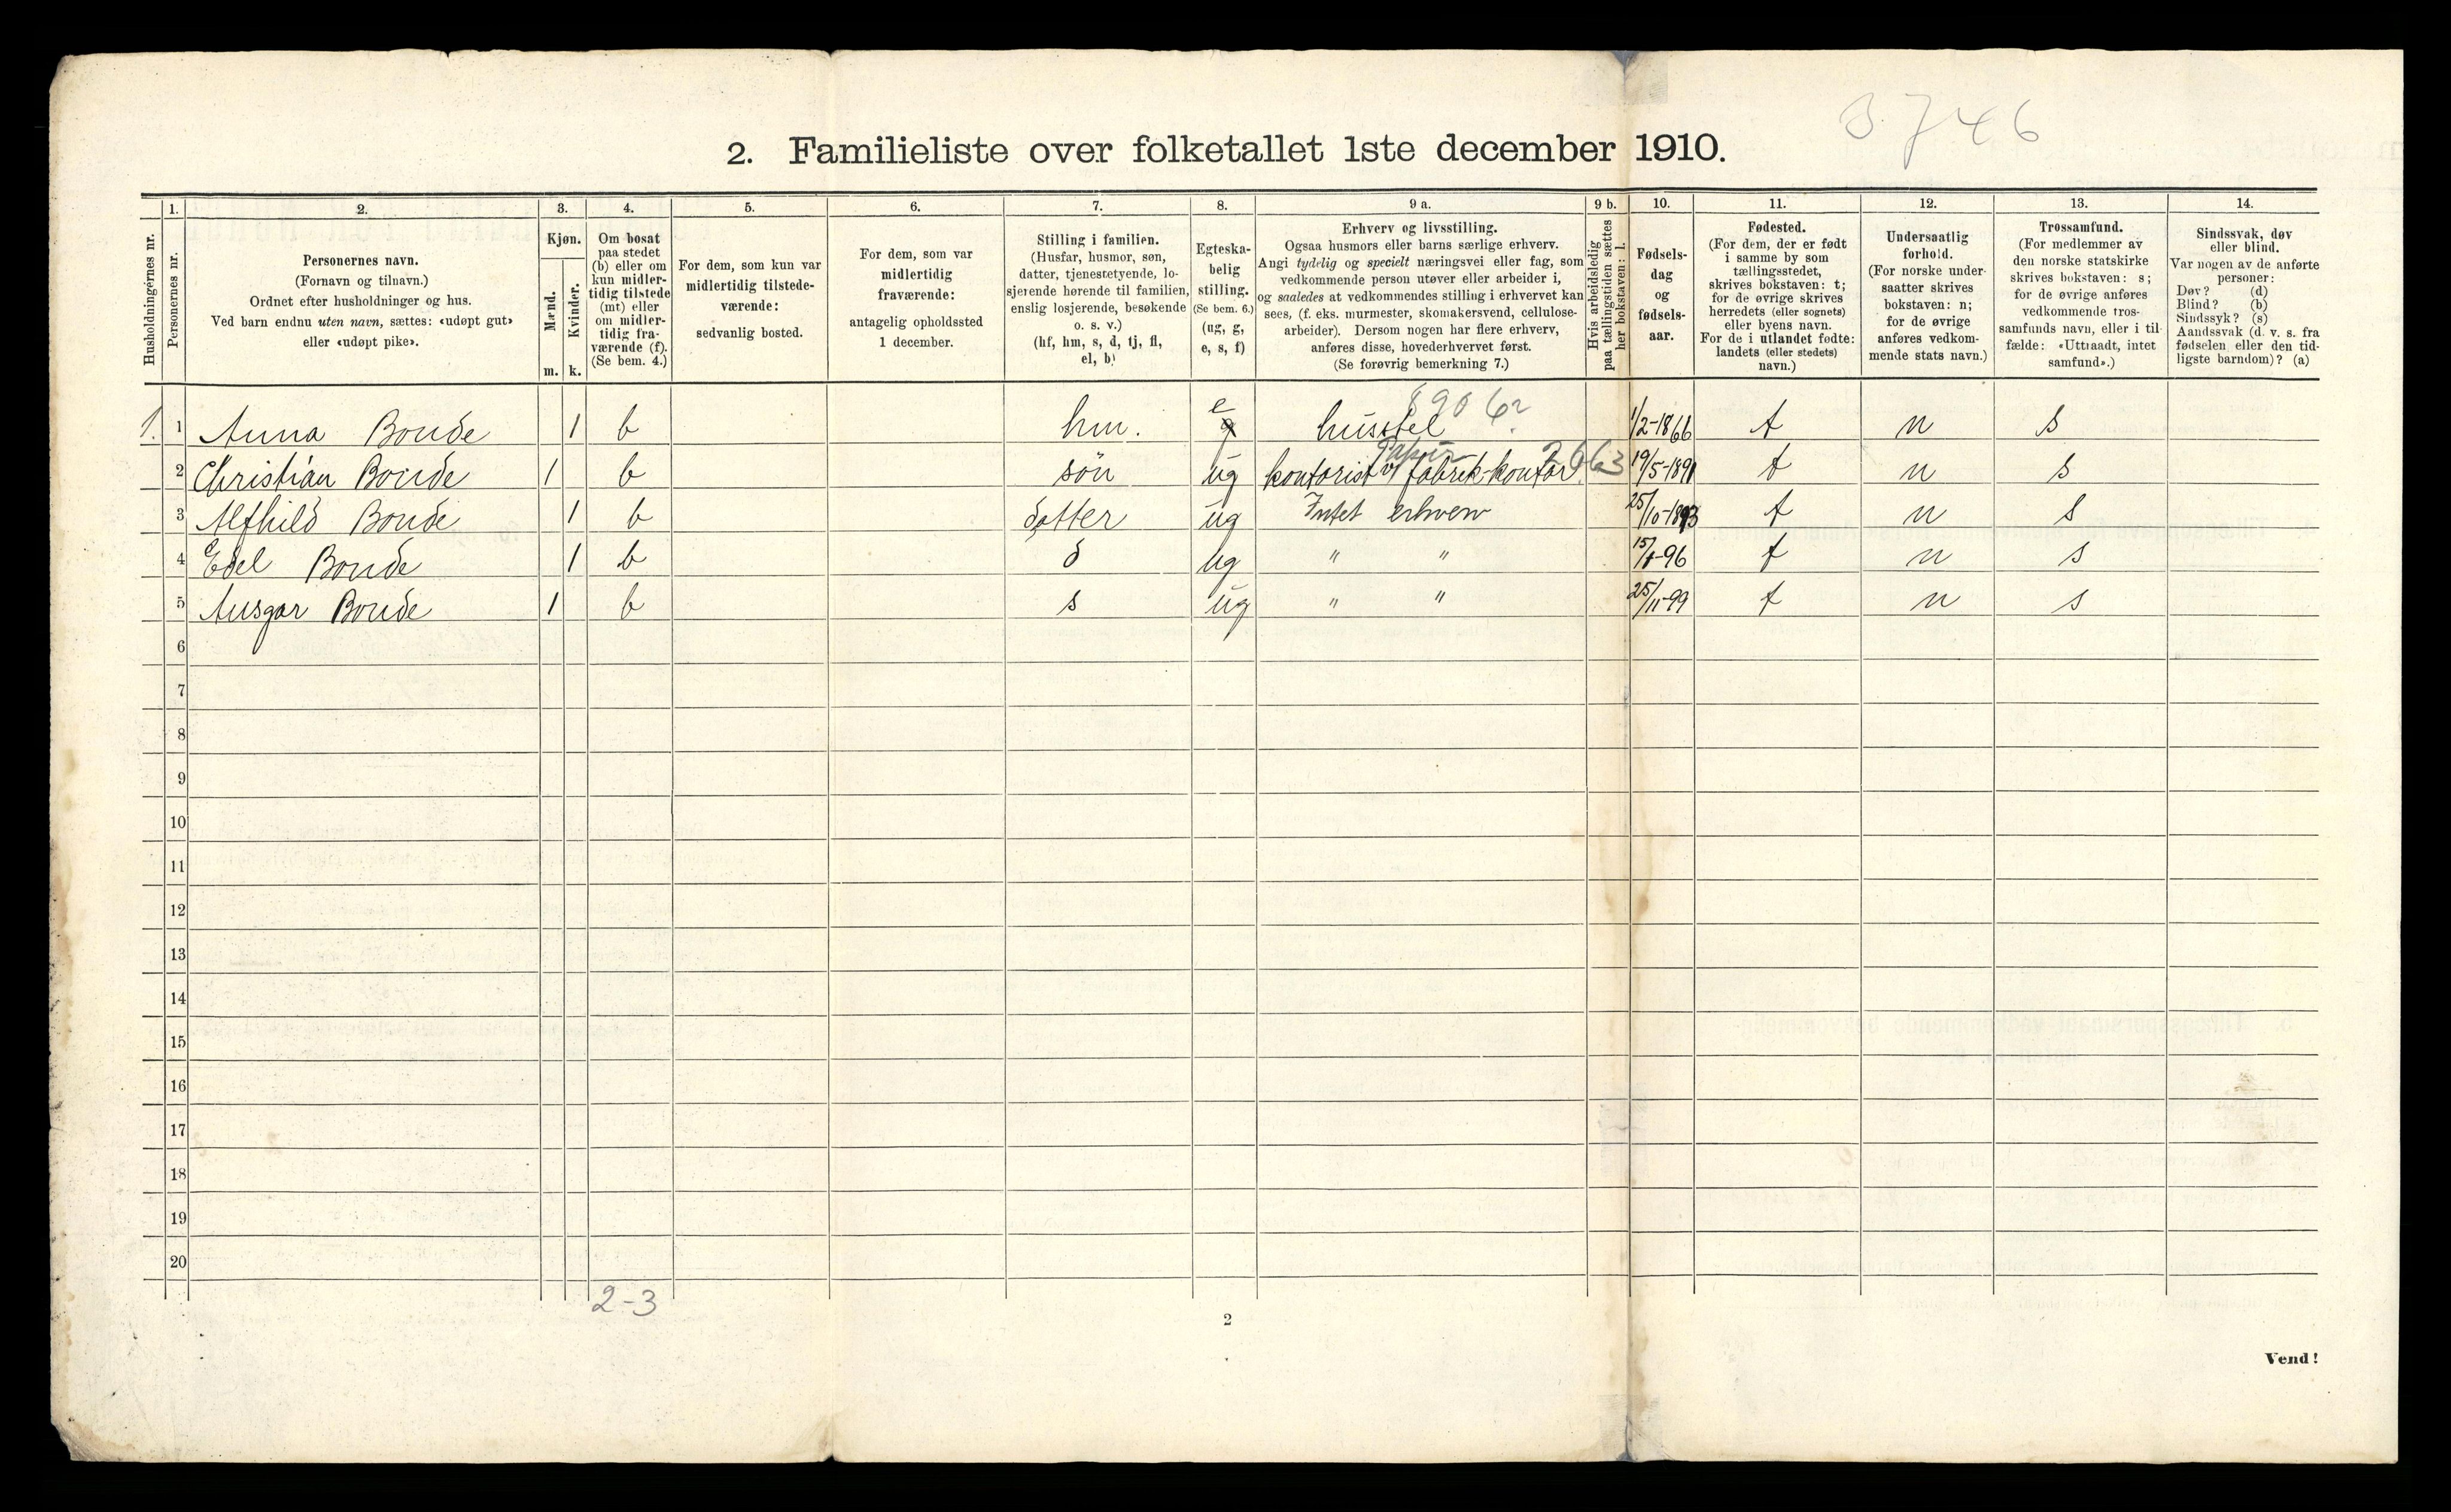 3746
2. Familieliste over folketallet 1ste december 1910.
Husholdningernes nr.
1.
Personernes nr.
2.
Personernes navn.
(Fornavn og tilnavn.)
Ordnet efter husholdninger og hus.
Ved barn endnu uten navn, sættes: «udøpt gut»
eller «udøpt pike».
3.
Kjøn.
Mænd.
Kvinder.
m. k.
4.
Om bosat
paa stedet
(b) eller om
kun midler-
tidig tilstede
(mt) eller
om midler-
tidig fra-
værende (f).
(Se bem. 4.)
5.
For dem, som kun var
midlertidig tilstede-
værende:
sedvanlig bosted.
6.
For dem, som var
midlertidig
fraværende:
antagelig opholdssted
1 december.
7.
Stilling i familien.
(Husfar, husmor, søn,
datter, tjenestetyende, lo-
sjerende hørende til familien,
enslig losjerende, besøkende
o. s. v.)
(hf, hm, s, d, tj, fl,
el, b)
8.
Egteska-
belig
stilling.
(Se bem. 6.)
(ug, g,
e, s, f)
9 a.
Erhverv og livsstilling.
Ogsaa husmors eller barns særlige erhverv.
Angi tydelig og specielt næringsvei eller fag, som
vedkommende person utøver eller arbeider i,
og saaledes at vedkommendes stilling i erhvervet kan
sees, (f. eks. murmester, skomakersvend, cellulose-
arbeider). Dersom nogen har flere erhverv,
anføres disse, hovederhvervet først.
(Se forøvrig bemerkning 7.)
9 b.
Hvis arbeidsledig
paa tællingstiden sættes
her bokstaven: l.
10.
Fødsels-
dag
og
fødsels-
aar.
11.
Fødested.
(For dem, der er født
i samme by som
tællingsstedet,
skrives bokstaven: t;
for de øvrige skrives
herredets (eller sognets)
eller byens navn.
For de i utlandet fødte:
landets (eller stedets)
navn.)
12.
Undersaatlig
forhold.
(For norske under-
saatter skrives
bokstaven: n;
for de øvrige
anføres vedkom-
mende stats navn.)
13.
Trossamfund.
(For medlemmer av
den norske statskirke
skrives bokstaven: s;
for de øvrige anføres
vedkommende tros-
samfunds navn, eller i til-
fælde: «Uttraadt, intet
samfund».)
14.
Sindssvak, døv
eller blind.
Var nogen av de anførte
personer:
Døv? (d)
Blind? (b)
Sindssyk? (s)
Aandssvak (d. v. s. fra
fødselen eller den tid-
ligste barndom)? (a)
e 8906
1. 1 Anna Bonde 1 b hm. g husstel 1/2-1866 t n s
Papir 2663
2 Christian Bonde 1 b sön ug kontorist v/ fabrik-kontor. 19/5-1891 t n s
3 Alfhild Bonde 1 b datter ug Intet erhverv 25/10-1893 t n s
4 Edel Bonde 1 b d ug " " 15/1-96 t n s
5 Ansgar Bonde 1 b s ug " " 25/11-99 t n s
6
7
8
9
10
11
12
13
14
15
16
17
18
19
20
2-3
2
Vend!